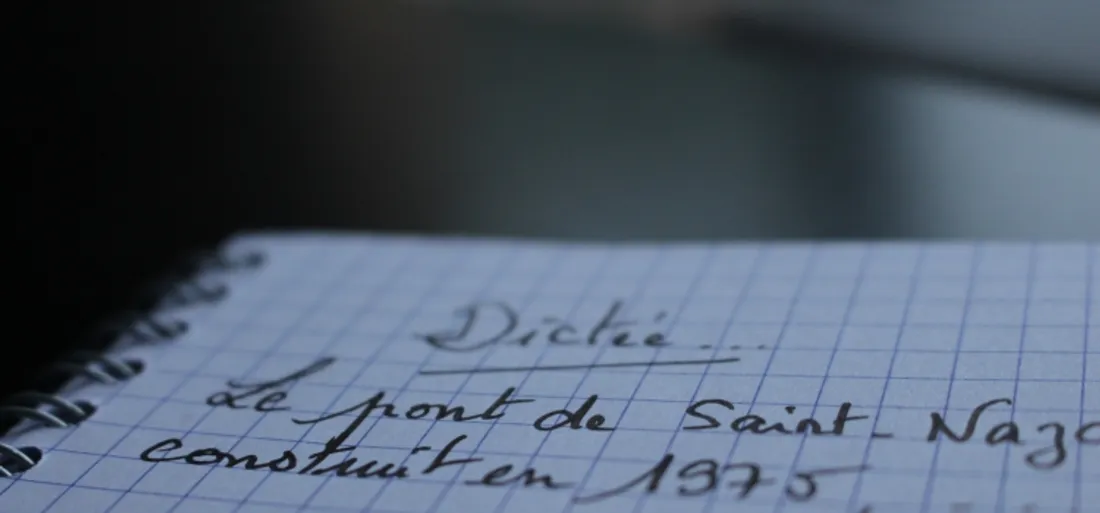 Dictée...
Le pont de Saint-Naza
construit en 1975